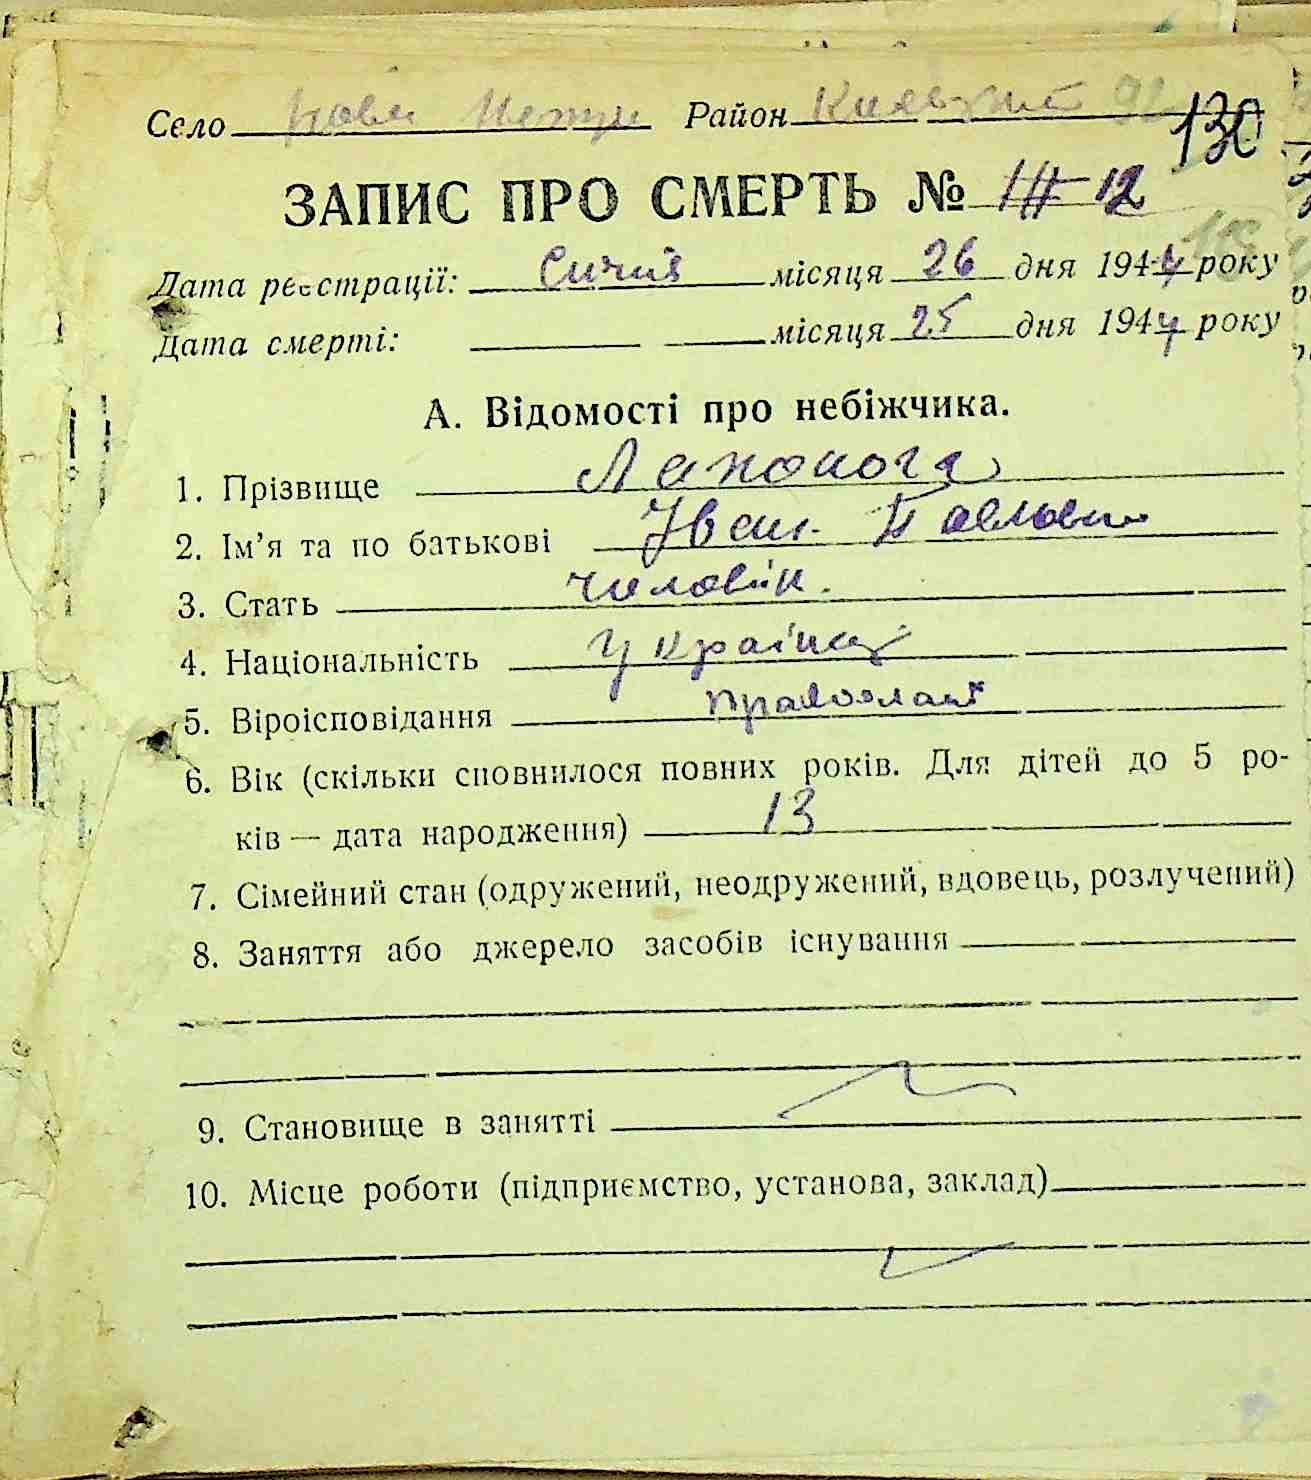 Село Нові Петри Район Київський 92
130
ЗАПИС ПРО СМЕРТЬ № 12
Дата реєстрації: Січня місяця 26 дня 1944 року
Дата смерті: місяця 25 дня 1944 року
А. Відомості про небіжчика.
1. Прізвище
2. Ім’я та по батькові Іван Павлович
3. Стать чиловік.
4. Національність українец
5. Віроісповідання
6. Вік (скільки сповнилося повних років. Для дітей до 5 ро-
ків — дата народження) 13
7. Сімейний стан (одружений, неодружений, вдовець, розлучений)
8. Заняття або джерело засобів існування
9. Становище в занятті
10. Місце роботи (підприємство, установа, заклад)